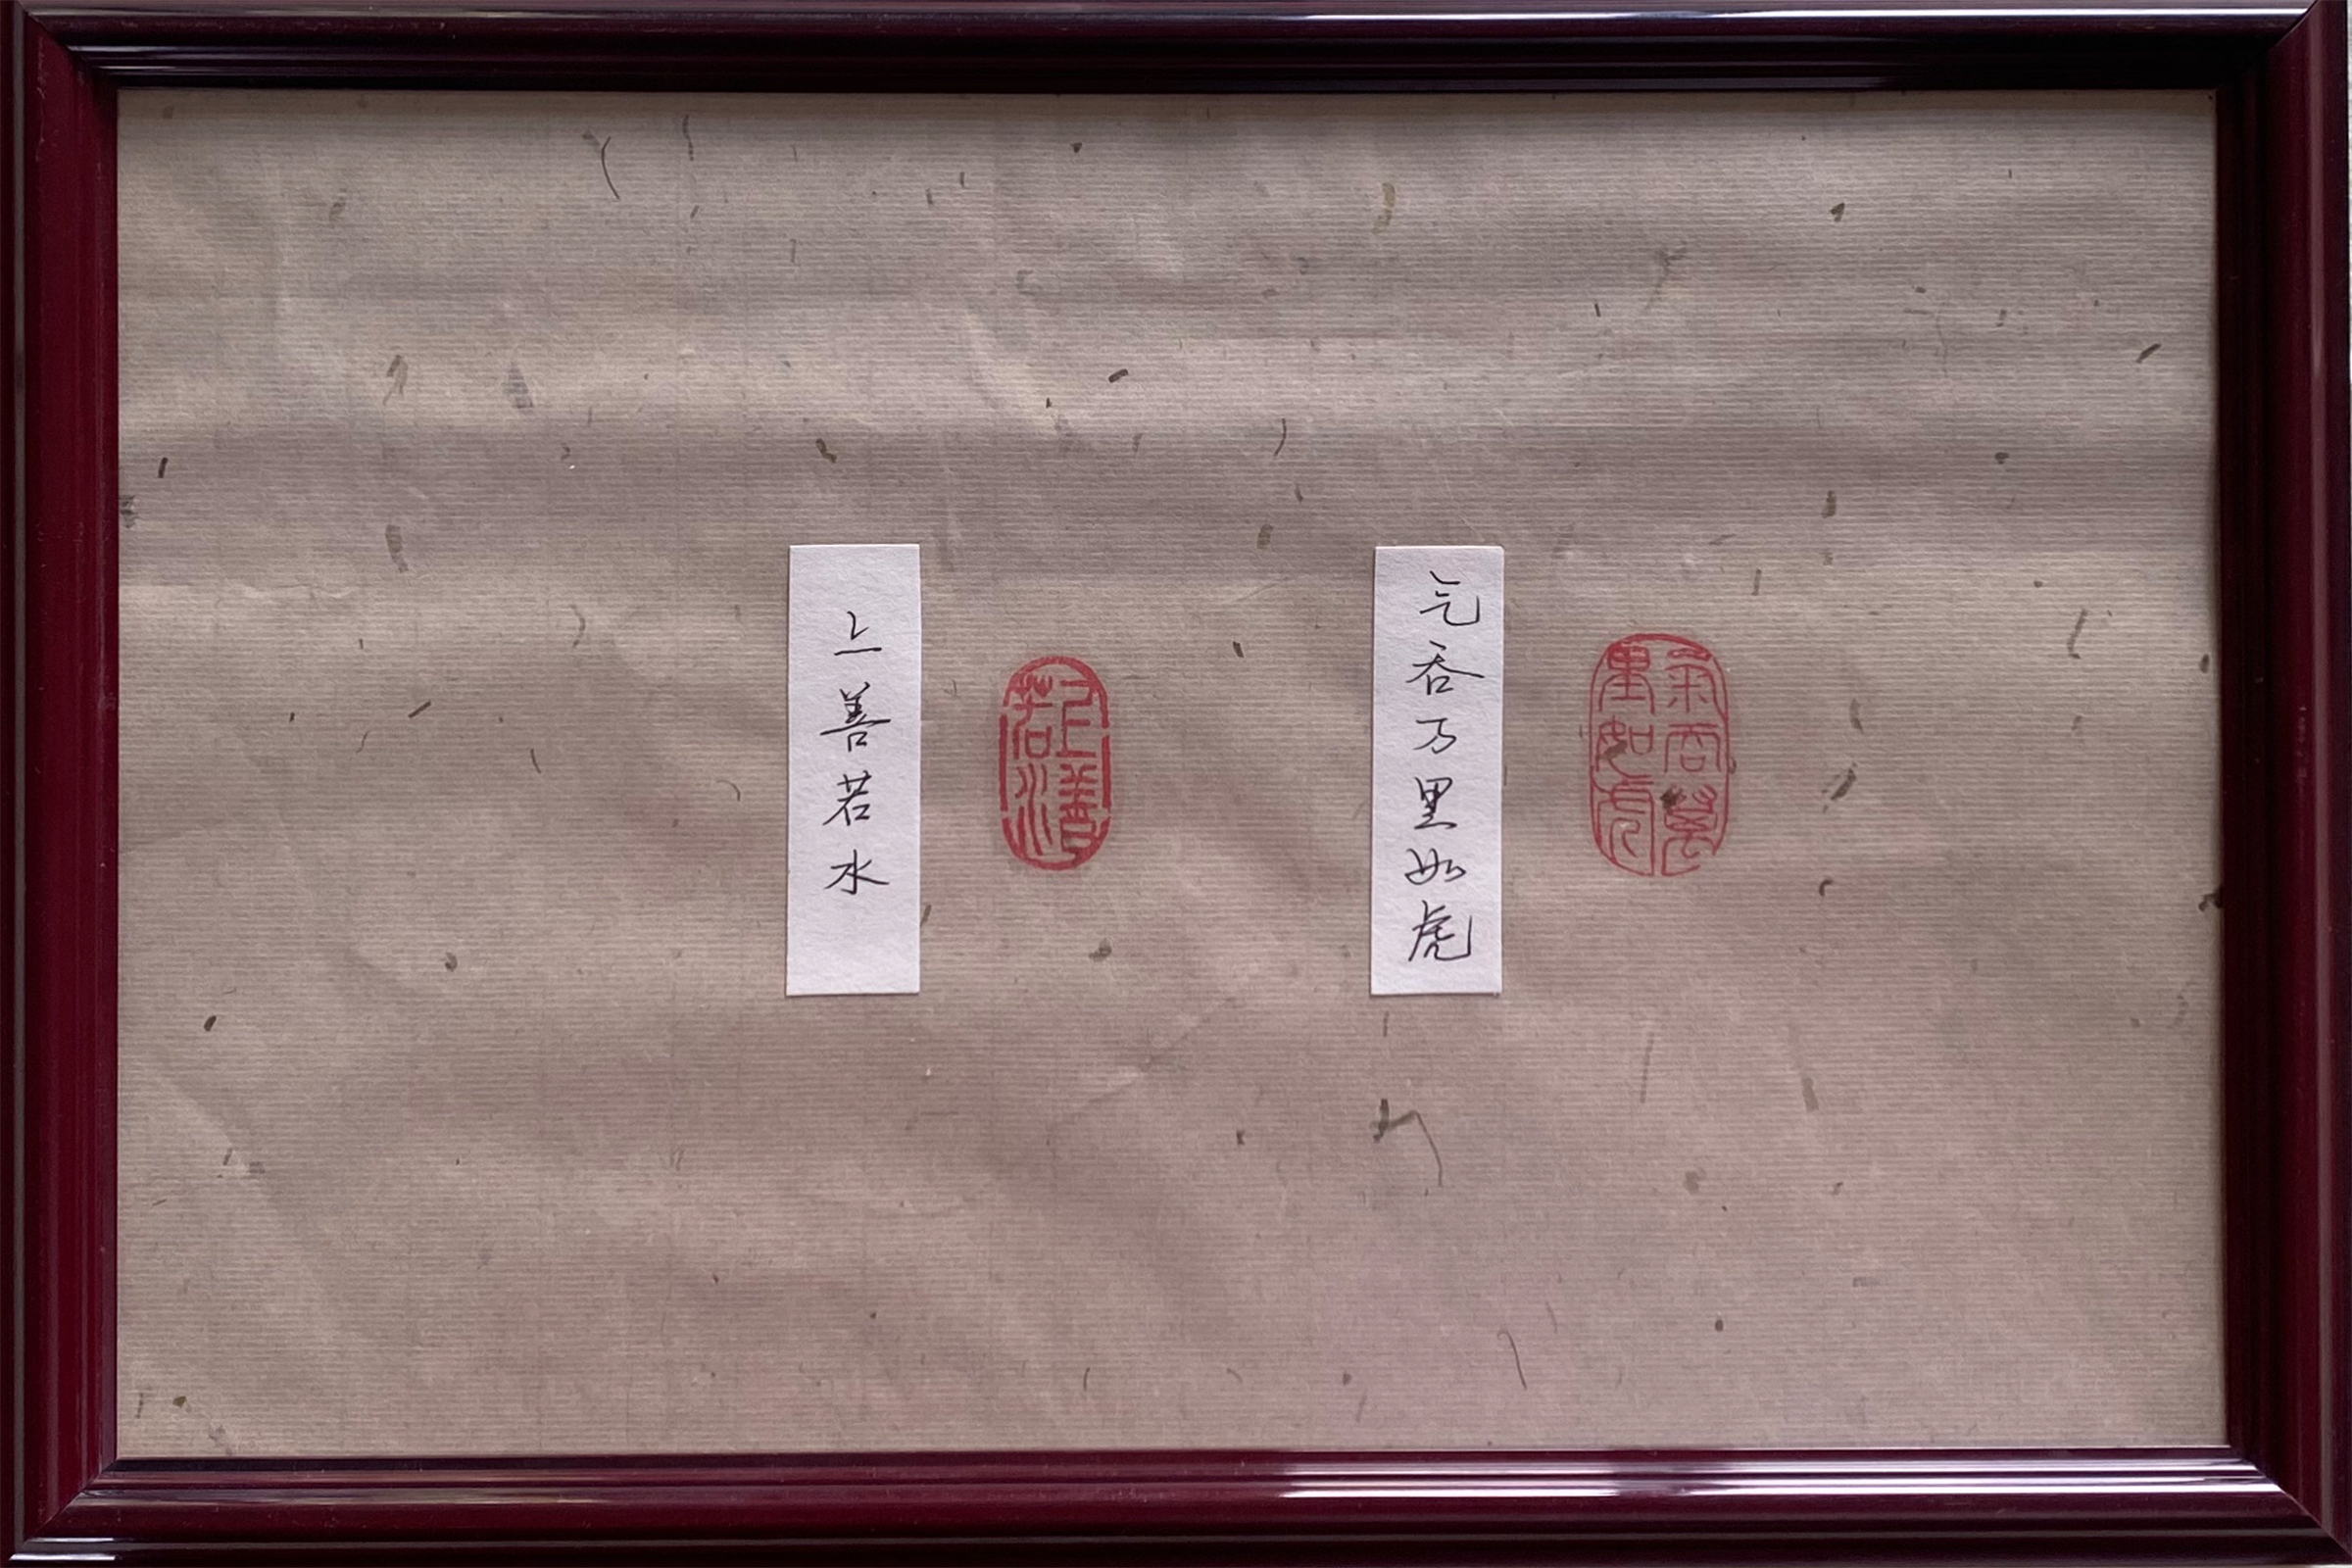 气吞万里如虎
氣吞萬
里如虎
上善若水
上善
若水